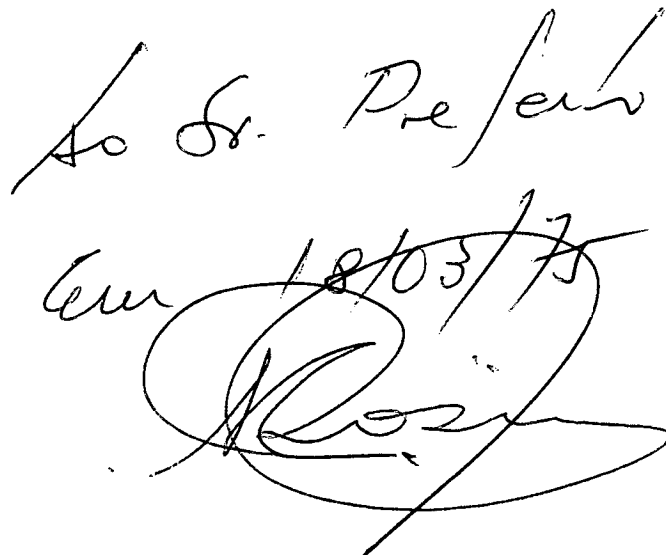 Ao Sr. Prefeito
Em 18/03/75